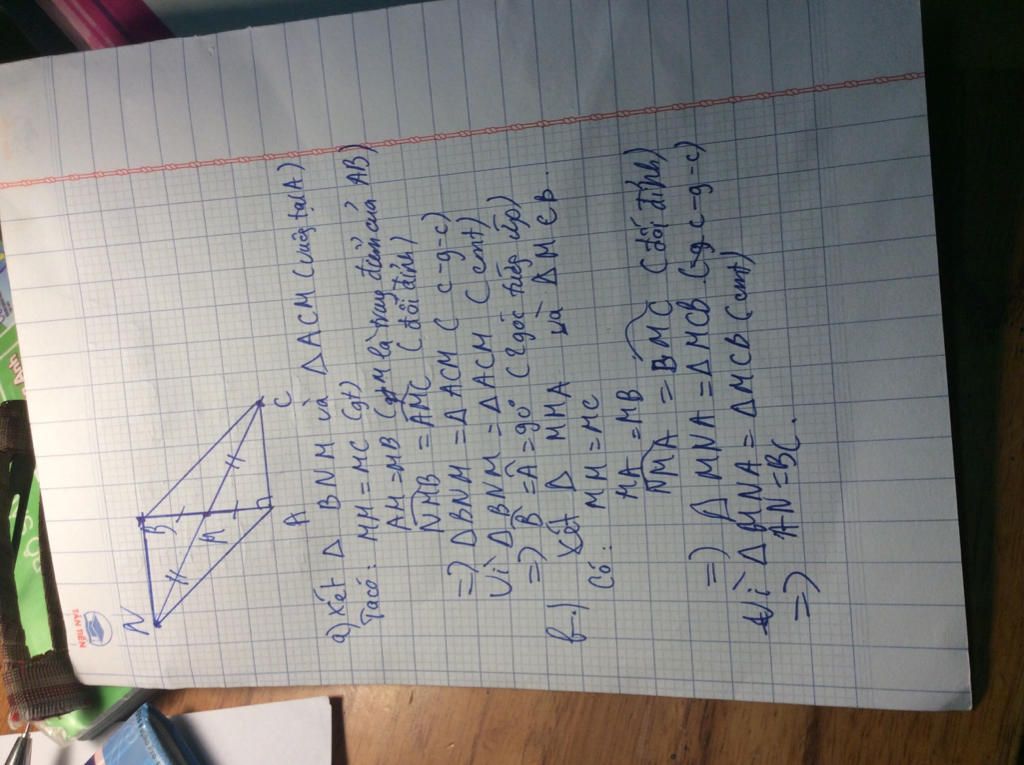 TÂN TIẾN
N
B
M
A
C
a) Xét Δ BNM và Δ ACM (vuông tại A)
Ta có: MN = MC (gt)
AM = MB (M là trung điểm của AB)
NMB = AMC (đối đỉnh)
=) Δ BNM = Δ ACM ( c-g-c)
Vì Δ BNM = Δ ACM (cmt)
=) B = A = 90° (2 góc tiếp)
b.) Xét Δ MNA và Δ MCB.
Có: MN = MC
MA = MB
NMA = BMC (đối đỉnh)
=) Δ MNA = Δ MCB (c-g-c)
Vì Δ MNA = Δ MCB (cmt)
=) AN = BC.